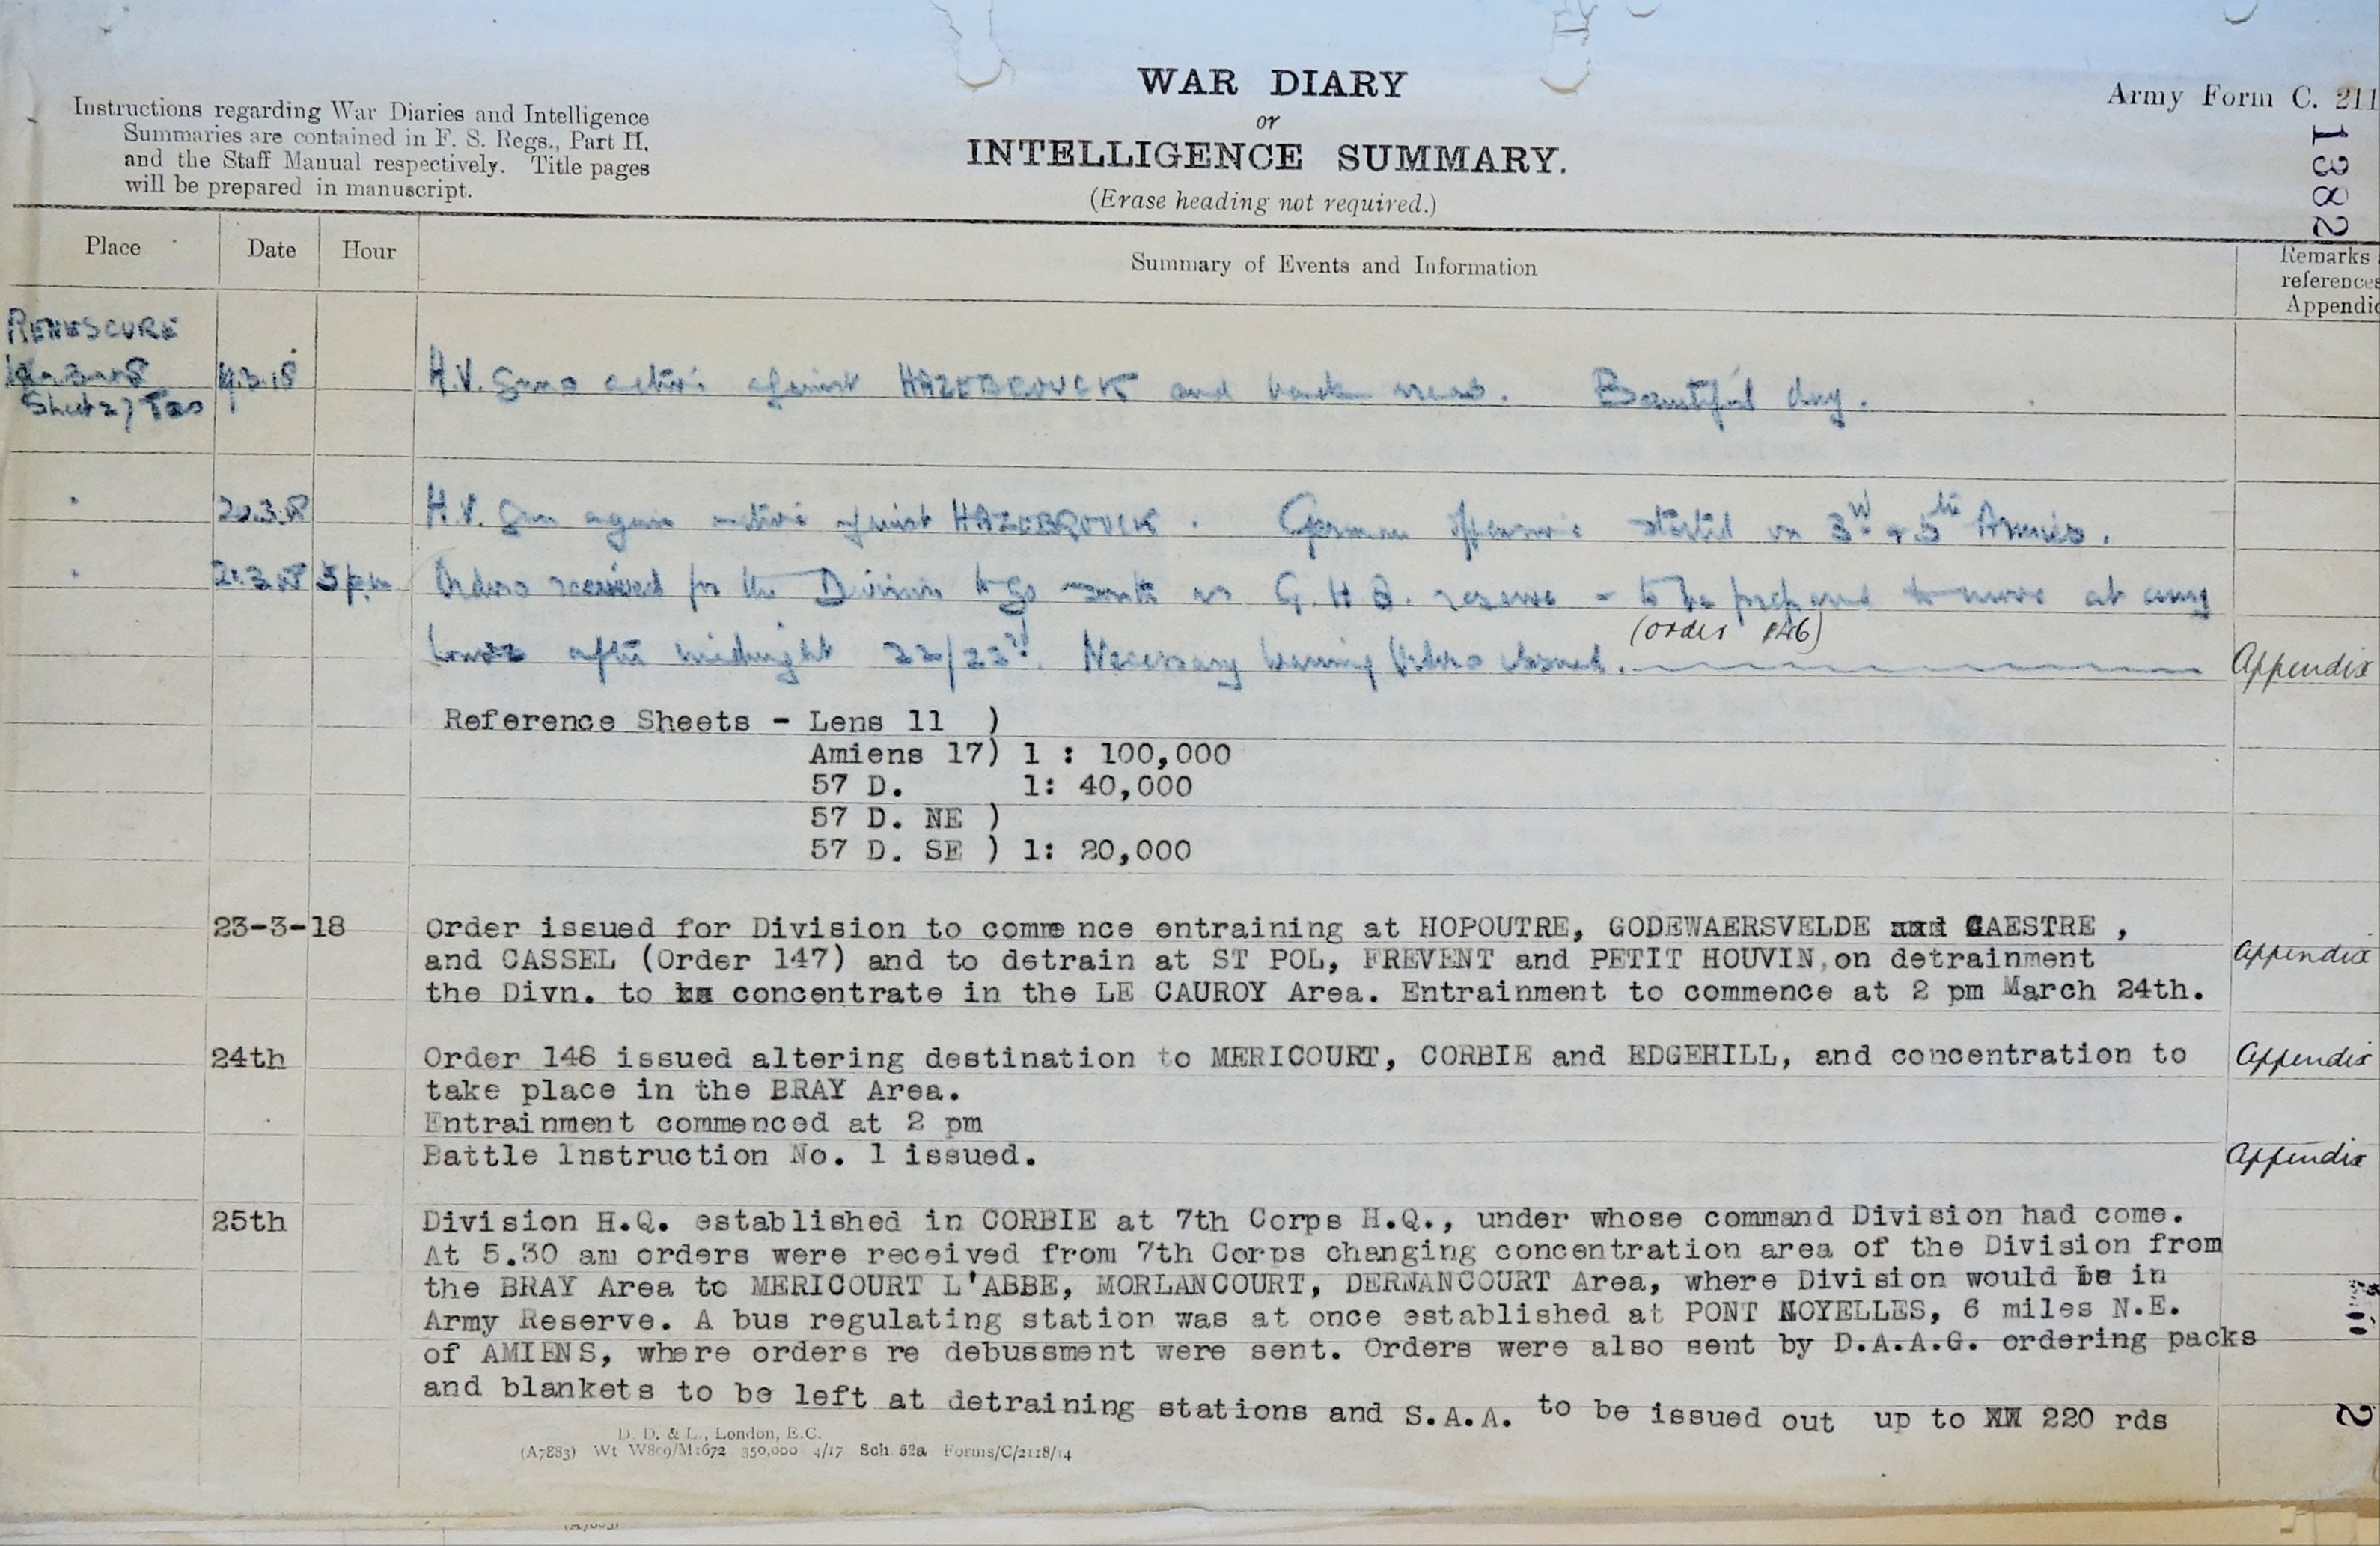 WAR DIARY
or
INTELLIGENCE SUMMARY.
(Erase heading not required.)
Instructions regarding War Diaries and Intelligence
Summaries are contained in F. S. Regs., Part II.
and the Staff Manual respectively. Title pages
will be prepared in manuscript.
Army Form C. 211
1382
Place Date Hour Summary of Events and Information Remarks
references
Appendic
RENESCURE
Sheet 27 T20 19.3.18 H.V. Guns active against HAZEBROUCK and back areas. Beautiful day.
" 20.3.18 H.V. Gun again active against HAZEBROUCK. German offensive started on 3rd & 5th Armies.
" 21.3.18 5 pm Orders received for the Division to go south as G.H.Q. reserve - to be prepared to move at any
(order 146)
after midnight 22/23rd. Necessary Warning Orders issued. Appendix
Reference Sheets - Lens 11 )
Amiens 17) 1 : 100,000
57 D. 1: 40,000
57 D. NE )
57 D. SE ) 1: 20,000
23-3-18 Order issued for Division to comme nce entraining at HOPOUTRE, GODEWAERSVELDE and CAESTRE ,
and CASSEL (Order 147) and to detrain at ST POL, FREVENT and PETIT HOUVIN,on detrainment Appendix
the Divn. to concentrate in the LE CAUROY Area. Entrainment to commence at 2 pm March 24th.
24th Order 148 issued altering destination to MERICOURT, CORBIE and EDGEHILL, and concentration to Appendix
take place in the BRAY Area.
Entrainment commenced at 2 pm
Battle Instruction No. 1 issued. Appendix
25th Division H.Q. established in CORBIE at 7th Corps H.Q., under whose command Division had come.
At 5.30 am orders were received from 7th Corps changing concentration area of the Division from
the BRAY Area to MERICOURT L'ABBE, MORLANCOURT, DERNANCOURT Area, where Division would be in
Army Reserve. A bus regulating station was at once established at PONT NOYELLES, 6 miles N.E.
of AMIENS, where orders re debussment were sent. Orders were also sent by D.A.A.G. ordering packs
and blankets to be left at detraining stations and S.A.A. to be issued out up to 220 rds
2
D. D. & L., London, E.C.
(A7883) Wt W809/M1672 350,000 4/17 Sch. 52a Forms/C/2118/14